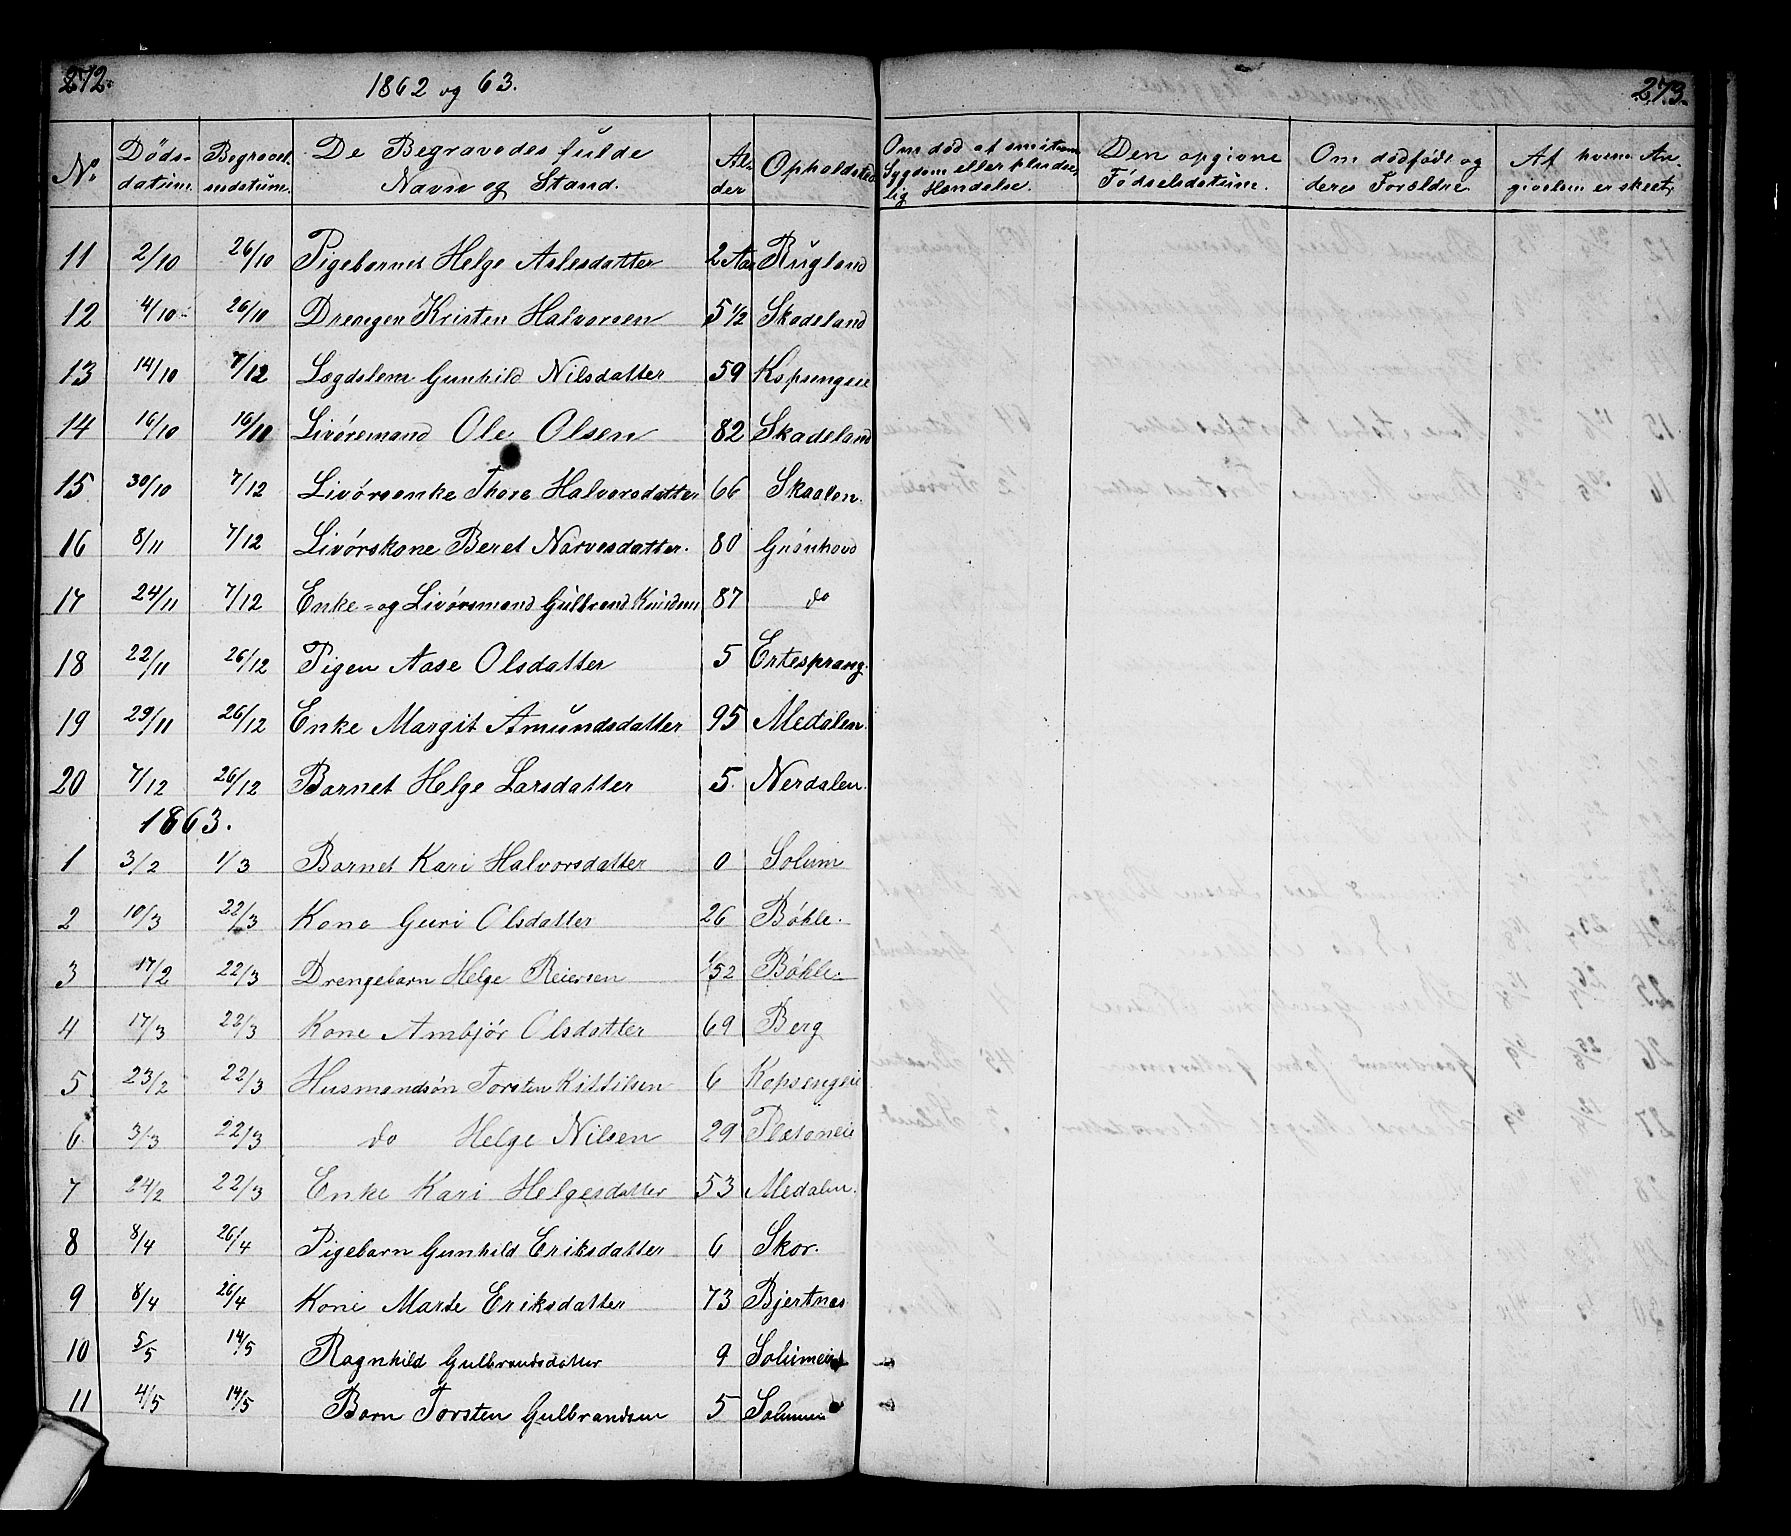 272.
1862 og 63.
273.
No Døds- datum. Begravel- sesdatum. De Begravedes fulde Navn og Stand. Al- der Opholdsted Om død af smitsom Sygdom eller ulykke- lig Hændelse. Den opgivne Fødselsdatum. Om dødfødt og deres Forældre Af hvem An- givelsen er skeet.
11 2/10 26/10 Pigebarnet Helge Aslesdatter 2 Aar Rugland
12 4/10 26/10 Drengen Kristen Halvorsen 5 1/2 Skadeland
13 14/10 7/12 Lægdslem Gunhild Nilsdatter 59 Kopsengeie
14 16/10 16/11 Livøresmand Ole Olsen 82 Skadeland
15 30/10 7/12 Livørsenke Thore Halvorsdatter 66 Skaalen.
16 8/11 7/12 Livørskone Beret Narvesdatter. 80 Grønhovd
17 24/11 7/12 Enke- og Livørsmand Gulbrand Knudsen 87 do
18 22/11 26/12 Pigen Aase Olsdatter 5 Ertesprang.
19 29/11 26/12 Enke Margit Amundsdatter 95 Medalen.
20 7/12 26/12 Barnet Helge Larsdatter 5. Nerdalen.
1863.
1 3/2 1/3 Barnet Kari Halvorsdatter 0 Solum
2 10/3 22/3 Kone Guri Olsdatter 26 Bøhle.
3 17/2 22/3 Drengebarn Helge Reiersen 1/52 Bøhle.
4 17/3 22/3 Kone Ambjør Olsdatter 69 Berg
5 23/2 22/3 Husmandsøn Torsten Kittilsen 6 Kopsengeie
6 3/3 22/3 do Helge Nilsen 29 Plassneie
7 24/2 22/3 Enke Kari Helgesdatter 53 Medalen.
8 8/4 26/4 Pigebarn Gunhild Eriksdatter 6 Skor.
9 8/4 26/4 Kone Marte Eriksdatter 73 Bjertnes
10 5/5 14/5 Ragnhild Gulbrandsdatter 9 Solumeie
11 4/5 14/5 Barn Torsten Gulbrandsen 5 Solumeie